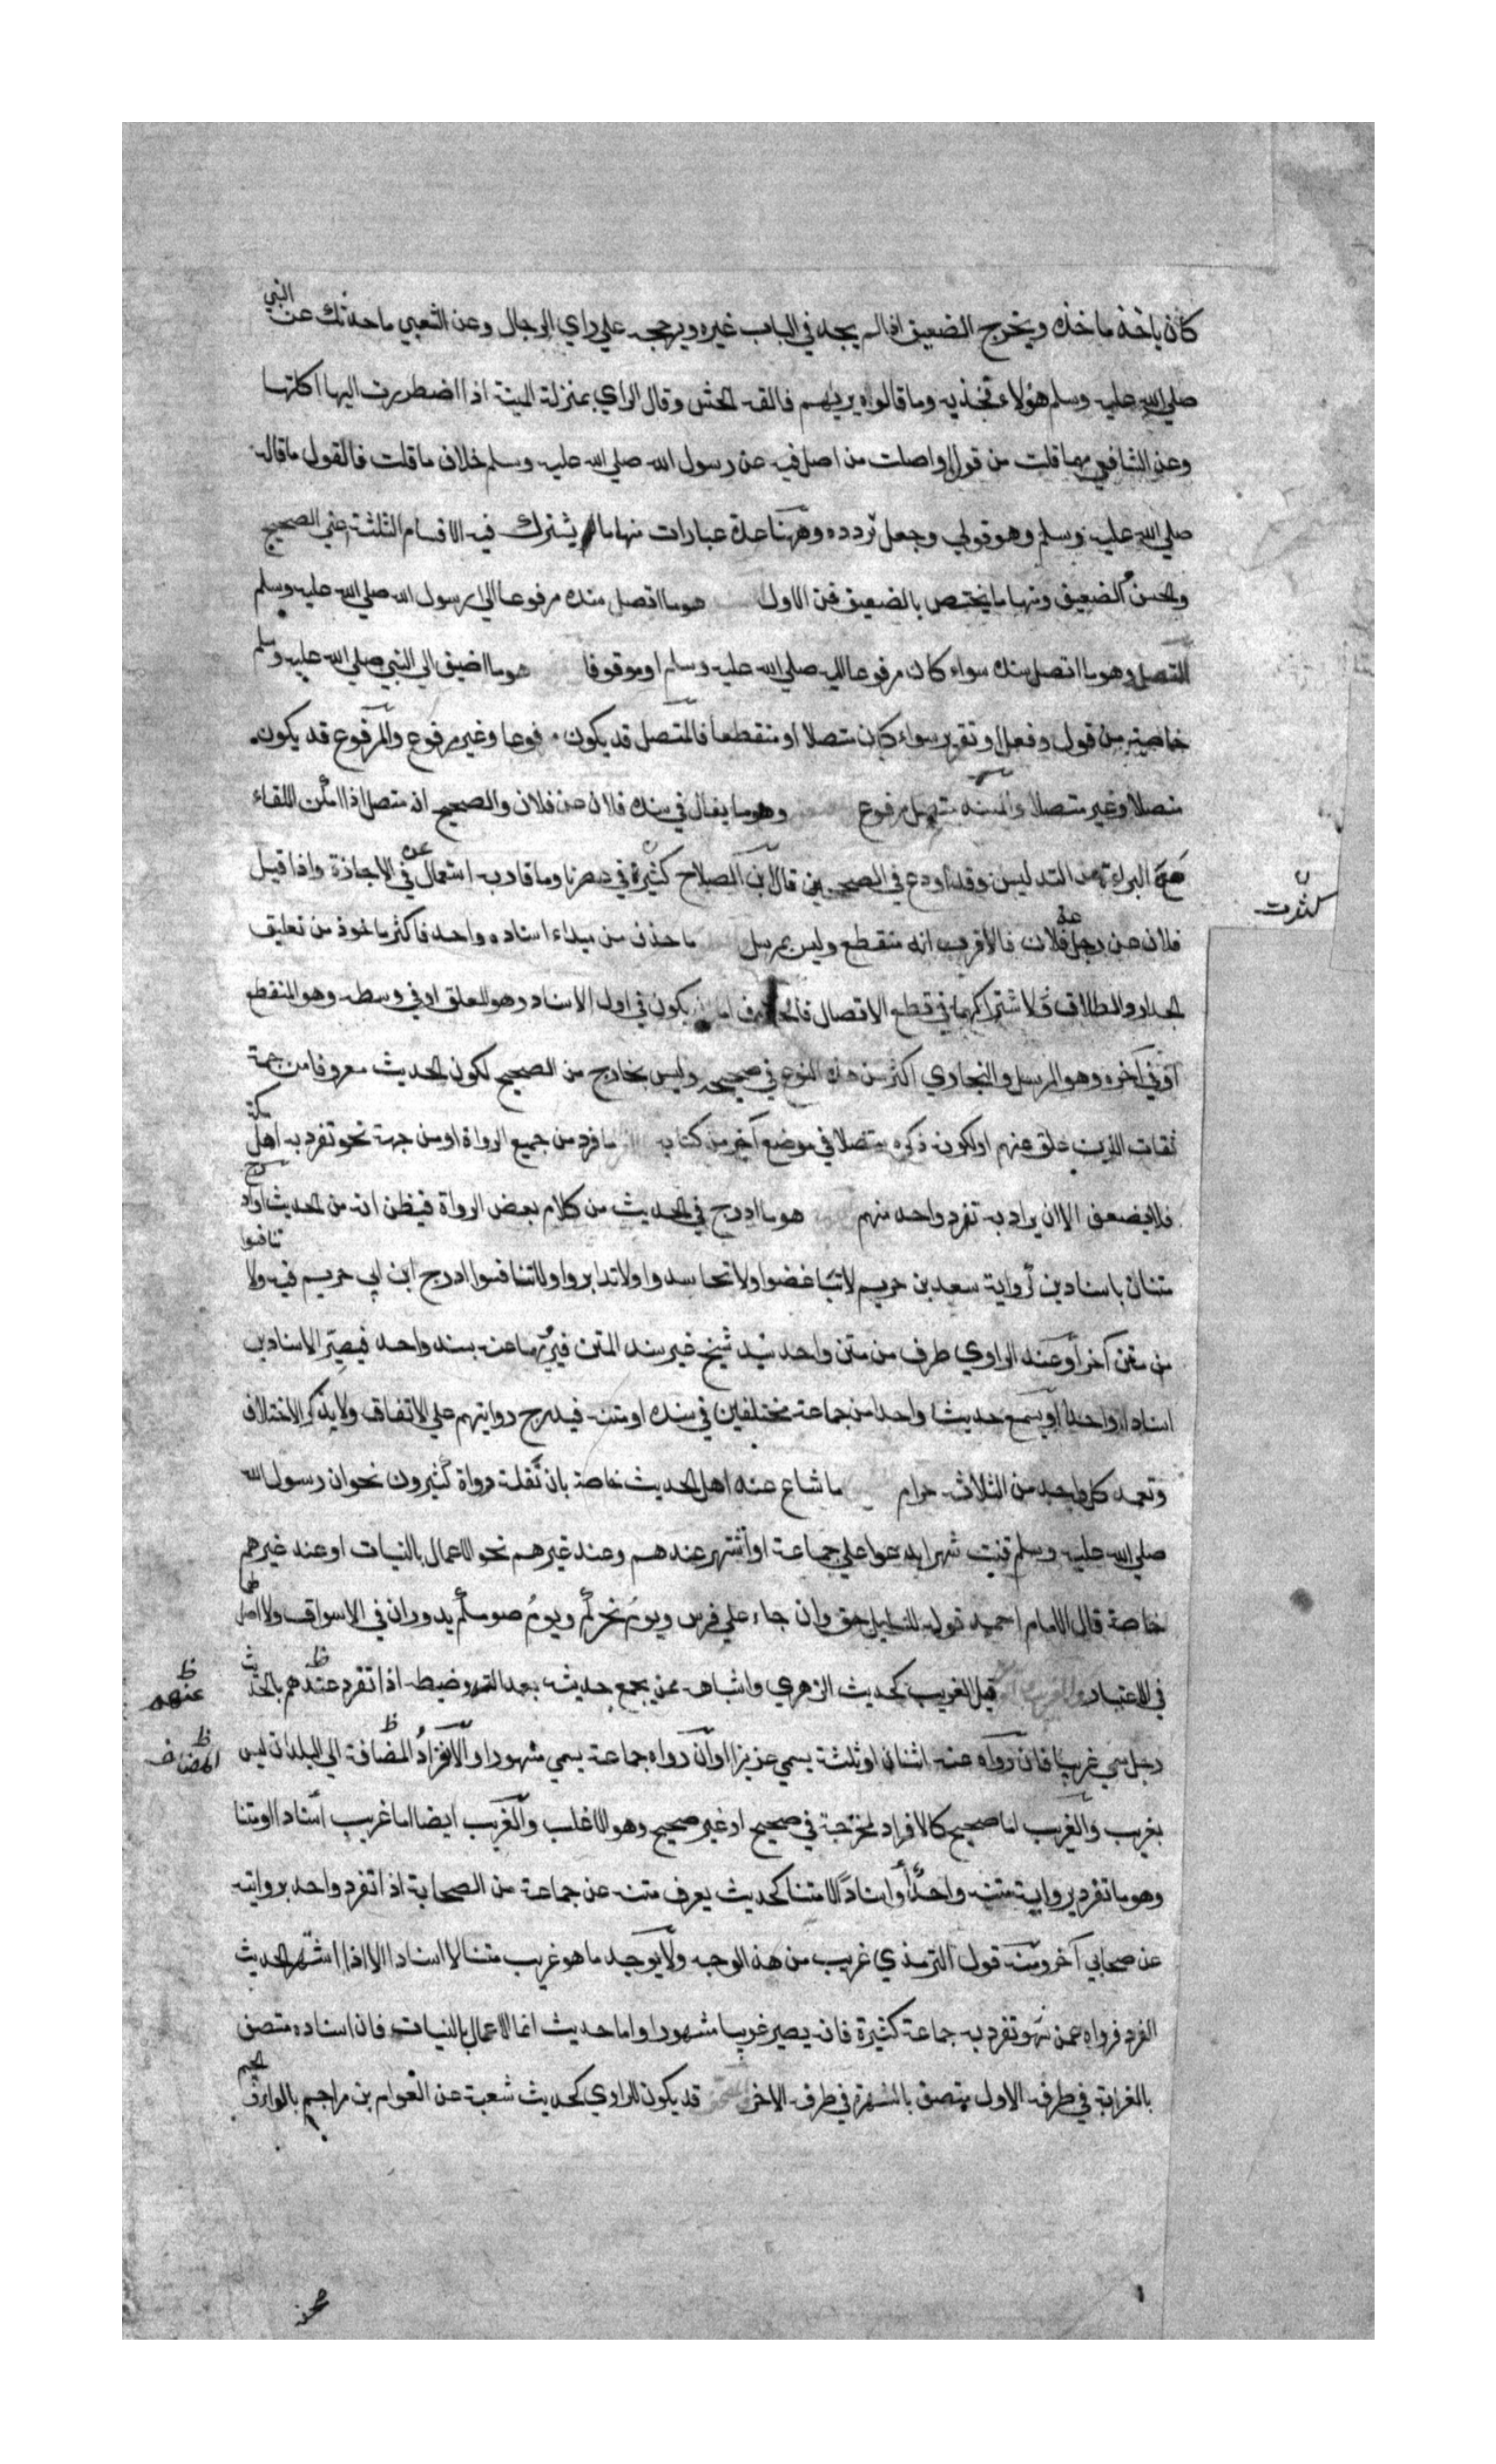 كان ياخذ ماخذه ويخرج الضعيف اذا لم يجد في الباب غيره ويرجحه علي راي الرجال وعن الشعبي ما حدثك عن النبي
صلي الله عليه وسلم هؤلاء فخذ به وما قالوا برايهم فالقه الحش وقال الراي بمنزلة الميتة اذا اضطررت اليها اكلتها
وعن الشافعي مهما قلت من قول او اصلت من اصل فيه عن رسول الله صلي الله عليه وسلم خلاف ما قلت فالقول ما قاله
صلي الله عليه وسلم وهو قولي وجعل تردده وههنا عدة عبارات منها ما يشترك فيه الاقسام الثلثة اعني الصحيح
والحسن والضعيف ومنها ما يختص بالضعيف فمن الاول هو ما اتصل سنده مرفوعا الي رسول الله صلي الله عليه وسلم
المتصل وهو ما اتصل سنده سواء كان مرفوعا اليه صلي الله عليه وسلم او موقوفا هو ما اضيف الي النبي صلي الله عليه وسلم
خاصة من قول او فعل او تقرير سواء كان متصلا او منقطعا فالمتصل قد يكون مرفوعا وغير مرفوع والمرفوع قد يكون
متصلا وغير متصل والمسند متصل مرفوع وهو ما يقال في سنده فلان عن فلان والصحيح انه متصل اذا امكن اللقاء
مع البراءة من التدليس وقد اودع في الصحيحين قال ابن الصلاح كثيرة في عصرنا وما قاربه استعمال عن في الاجازة واذا قيل
كثرت
فلان عن رجل عن فلان فالاقرب انه منقطع وليس بمرسل ما حذف من مبداء اسناده واحد فاكثر ماخوذ من تعليق
الجدار والطلاق لاشتراكهما في قطع الاتصال فالحذف اما ان يكون في اول الاسناد وهو المعلق او في وسطه وهو المنقطع
او في آخره وهو المرسل والبخاري اكثر من هذا النوع في صحيحه وليس بخارج من الصحيح لكون الحديث معروفا من جهة
ثقات الذين علق عنهم او لكونه ذكره متصلا في موضع آخر من كتابه ما فرد من جميع الرواة او من جهة نحو تفرد به اهل مكة
فلا يضعف الا ان يراد به تفرد واحد منهم هو ما ادرج في الحديث من كلام بعض الرواة فيظن انه من الحديث او ادرج
متنان باسنادين كرواية سعيد بن مريم لا تباغضوا ولا تحاسدوا ولا تدابروا ولا تنافسوا ادرج ابن ابي مريم فيه ولا تنافسوا
من متن آخر او عند الراوي طرف من متن واحد بسند شيخ غير سند المتن فيرويهما عنه بسند واحد فيصير الاسنادين
اسنادا واحدا او يسمع حديثا واحدا من جماعة مختلفين في سنده او متنه فيدرج روايتهم علي الاتفاق ولا يذكر الاختلاف
وتعمد كل واحد من الثلاث حرام ما شاع عند اهل الحديث خاصة بان نقله رواة كثيرون نحو ان رسول الله
صلي الله عليه وسلم قنت شهرا يدعوا علي جماعة او اشتهر عندهم وعند غيرهم نحو الاعمال بالنيات او عند غيرهم
خاصة قال الامام احمد قوله للسايل حق وان جاء علي فرس ويوم نحركم ويوم صومكم يدوران في الاسواق ولا اصل لهما
في الاعتبار قيل الغريب كحديث الزهري واشباهه ممن يجمع حديثه بعدالته وضبطه اذا تفرد عندهم بالحديث
عنهم
رجل سمي غريبا فان رواه عنه اثنان او ثلثة يسمي عزيزا وان رواه جماعة يسمي مشهورا والافراد المضافة الي البلدان ليس
المضاف
بغريب والغريب اما صحيح كالافراد المخرجة في صحيح او غير صحيح وهو الاغلب والغريب ايضا اما غريب اسنادا او متنا
وهو ما تفرد برواية متنه واحد او اسنادا لا متنا كحديث يعرف متنه عن جماعة من الصحابة اذا تفرد واحد بروايته
عن صحابي آخر ومنه قول الترمذي غريب من هذا الوجه ولا يوجد ما هو غريب متنا لا اسنادا الا اذا اشتهر الحديث
الفرد فرواه عمن تفرد به جماعة كثيرة فانه يصير غريبا مشهورا واما حديث انما الاعمال بالنيات فان اسناده متصف
بالغرابة في طرفه الاول متصف بالشهرة في طرفه الاخر قد يكون للراوي كحديث شعبة عن العوام بن مراجم بالراء والجيم